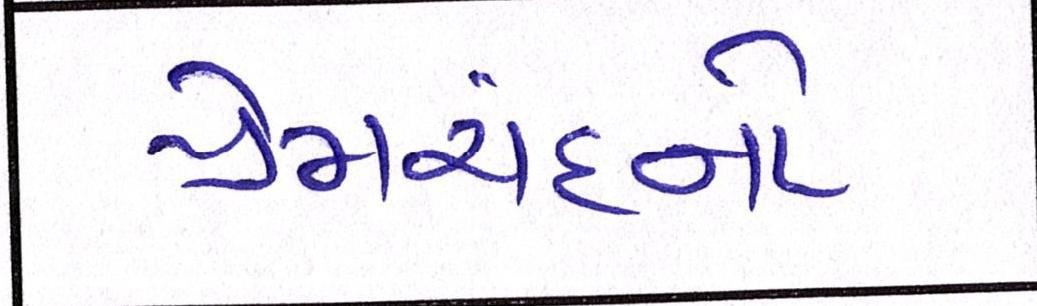 પ્રેમચંદનો